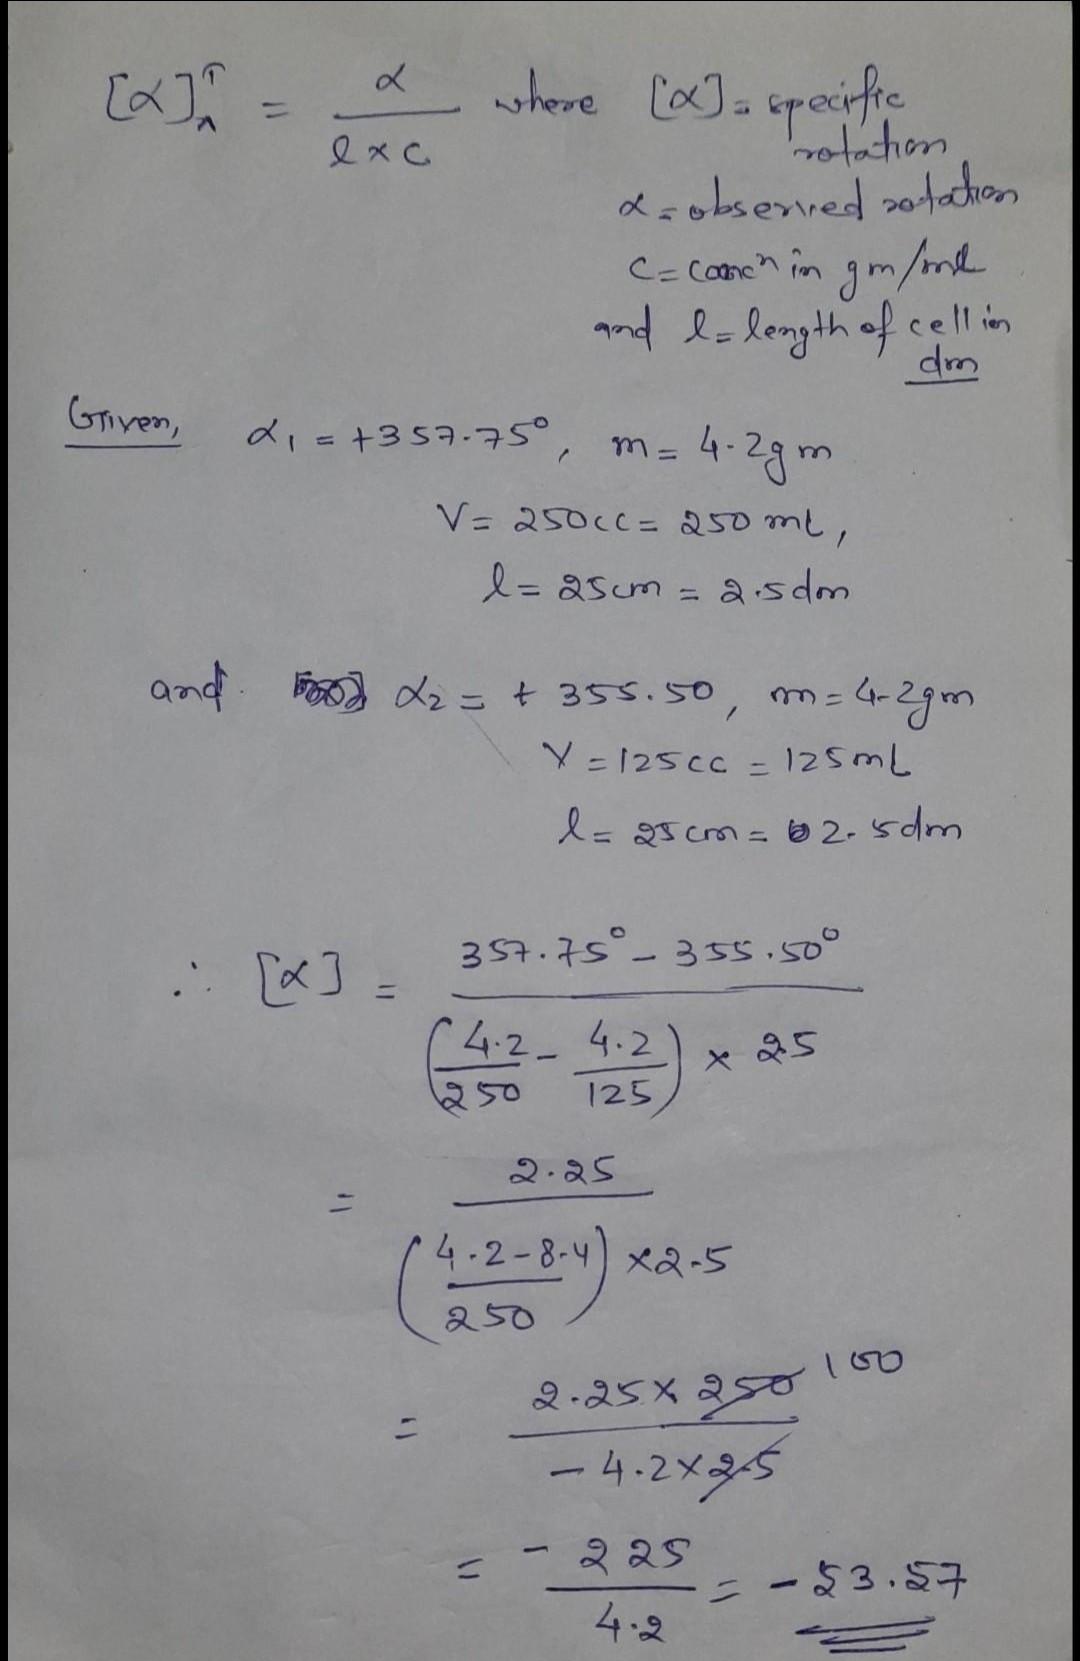 [α]ᵀλ = α / l × c where [α] = specific
rotation
α = observed rotation
c = concn in gm/ml
and l = length of cell in
dm
Given, α₁ = +357.75°, m = 4.2gm
V = 250cc = 250 mL,
l = 25cm = 2.5dm
and α₂ = + 355.50, m = 4.2gm
V = 125cc = 125mL
l = 25cm = 2.5dm
∴ [α] = 357.75° - 355.50° / (4.2/250 - 4.2/125) × 25
= 2.25 / (4.2-8.4/250) × 2.5
= 2.25 × 250 100 / - 4.2 × 2.5
= - 225 / 4.2 = - 53.57